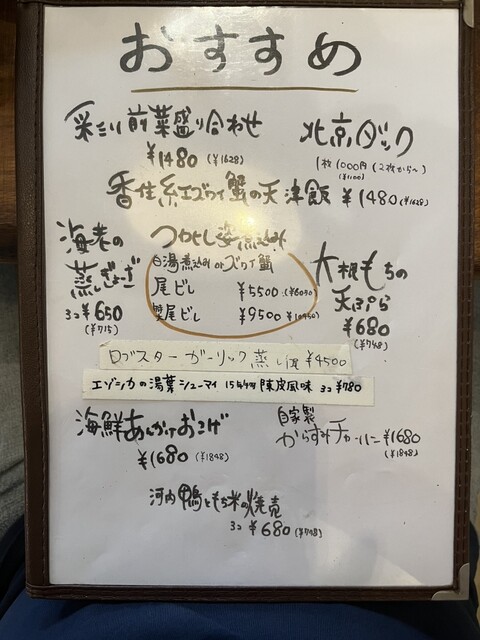 おすすめ
彩り前菜盛り合わせ
¥1480 (¥1628)
北京ダック
1枚 1000円 (2枚から〜)
(¥1100)
香住紅ズワイ蟹の天津飯 ¥1480 (¥1628)
海老の
蒸しぎょーざ
3コ ¥650
(¥715)
白湯煮込み or ズワイ蟹
尾ビレ ¥5500 (¥6050)
¥9500
大根もちの
天ぷら
¥680
(¥748)
ロブスターガーリック蒸し ¥4500
エゾシカの湯葉シューマイ 陳皮風味 3コ ¥780
海鮮あんかけおこげ
¥1680 (¥1848)
自家製
からすみチャーハン ¥1680
(¥1848)
河内鴨ともち米の焼売
3コ ¥680 (¥748)